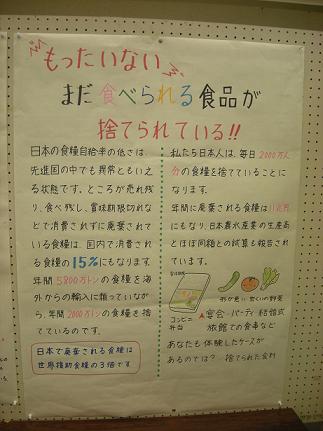 もったいない
まだ食べられる食品が
捨てられている!!
日本の食糧自給率の低さは
先進国の中でも異常ともいえ
る状態です。ところが売れ残
り、食べ残し、賞味期限切れな
どで消費されずに廃棄されて
いる食糧は、国内で消費され
る食糧の15%にもなります。
年間5800万トンの食糧を海
外からの輸入に頼っていなが
ら、年間2000万トンの食糧を捨
てているのです。
日本で廃棄される食糧は
世界援助食糧の3倍です
私たち日本人は、毎日2000万人
分の食糧を捨てていることに
なります。
年間に廃棄される食糧は11兆円
にもなり、日本農水産業の生産高
とほぼ同額との試算も報告され
ています。
コンビニ
弁当
形が悪い 虫くいの野菜
宴会・パーティ 結婚式
旅館での食事など
あなたも体験したケースが
あるのでは? 捨てられた食料